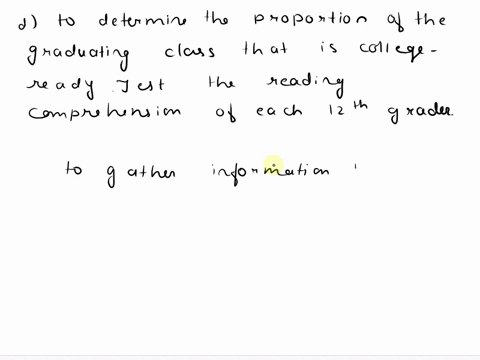 d) to determine the proportion of the
graduating class that is college-
ready. Test the reading
comprehension of each 12th grader
to gather information